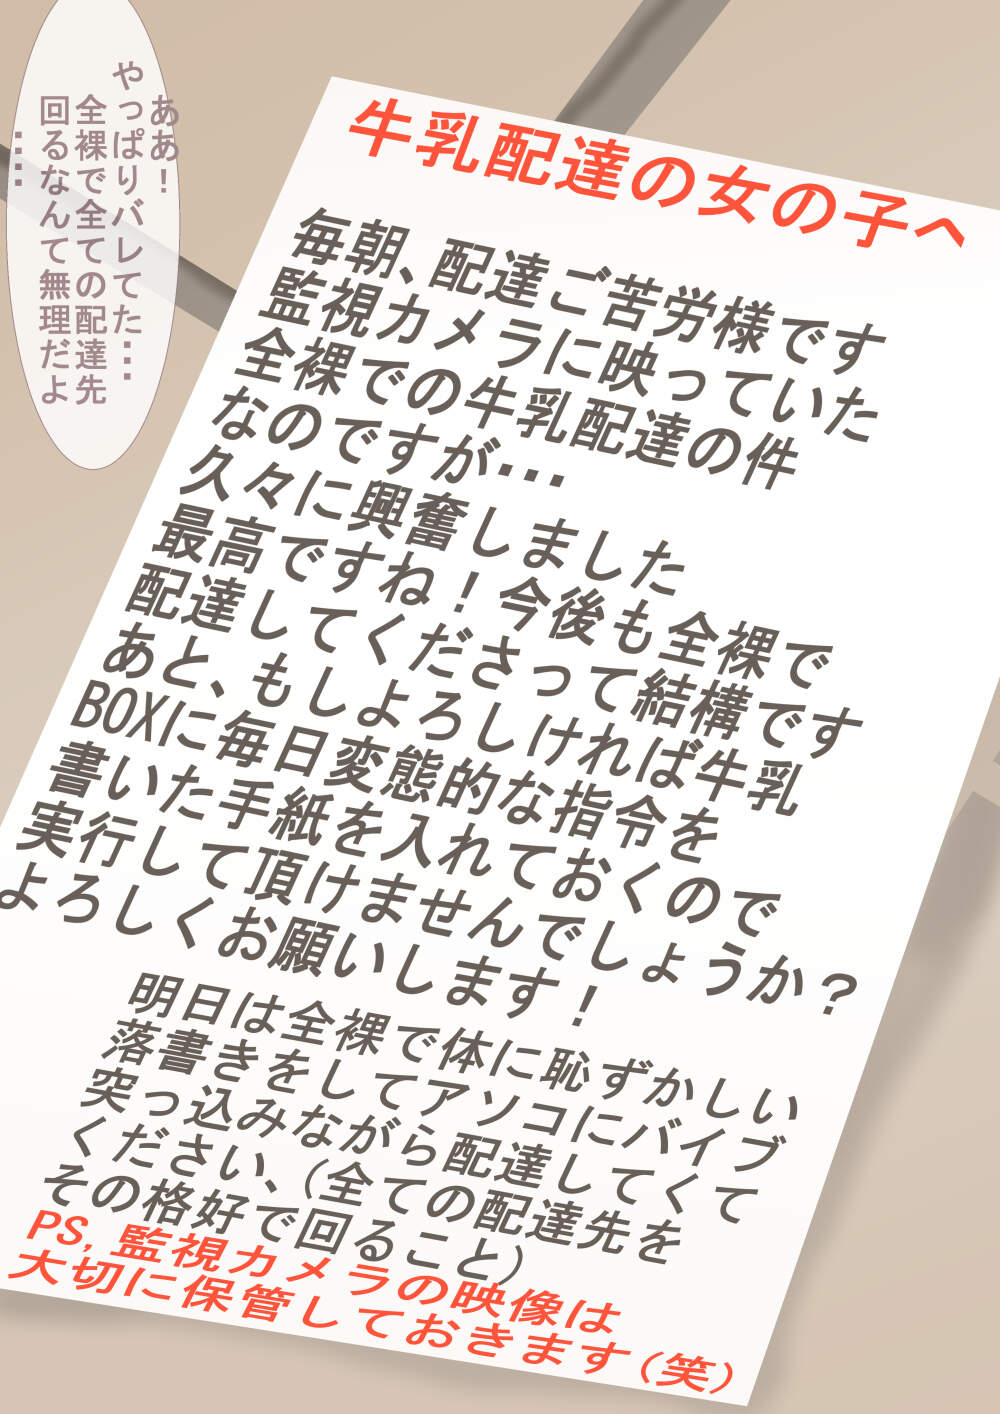 ああ！
やっぱりバレてた・・・
全裸で全ての配達先
回るなんて無理だよ
・・・・
牛乳配達の女の子へ
毎朝、配達ご苦労様です
監視カメラに映っていた
全裸での牛乳配達の件
なのですが・・・
久々に興奮しました
最高ですね！今後も全裸で
配達してくださって結構です
あと、もしよろしければ牛乳
BOXに毎日変態的な指令を
書いた手紙を入れておくので
実行して頂けませんでしょうか？
よろしくお願いします！
明日は全裸で体に恥ずかしい
落書きをしてアソコにバイブ
突っ込みながら配達してくて
ください、（全ての配達先を
その格好で回ること）
PS,監視カメラの映像は
大切に保管しておきます（笑）